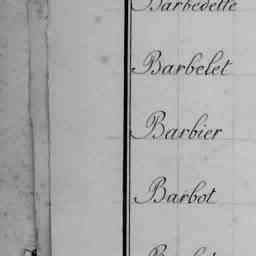 Barbedette
Barbelet
Barbier
Barbot